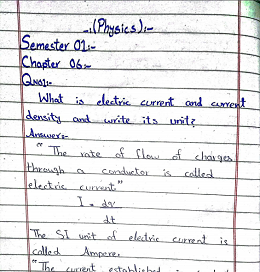 -:(Physics):-
Semester 01:-
Chapter 06:-
Qno1:-
What is electric current and current
density and write its unit?
Answer:-
"The rate of flow of charges
through a conductor is called
electric current"
I = dq
dt
The SI unit of electric current is
called Ampere.
"The current established